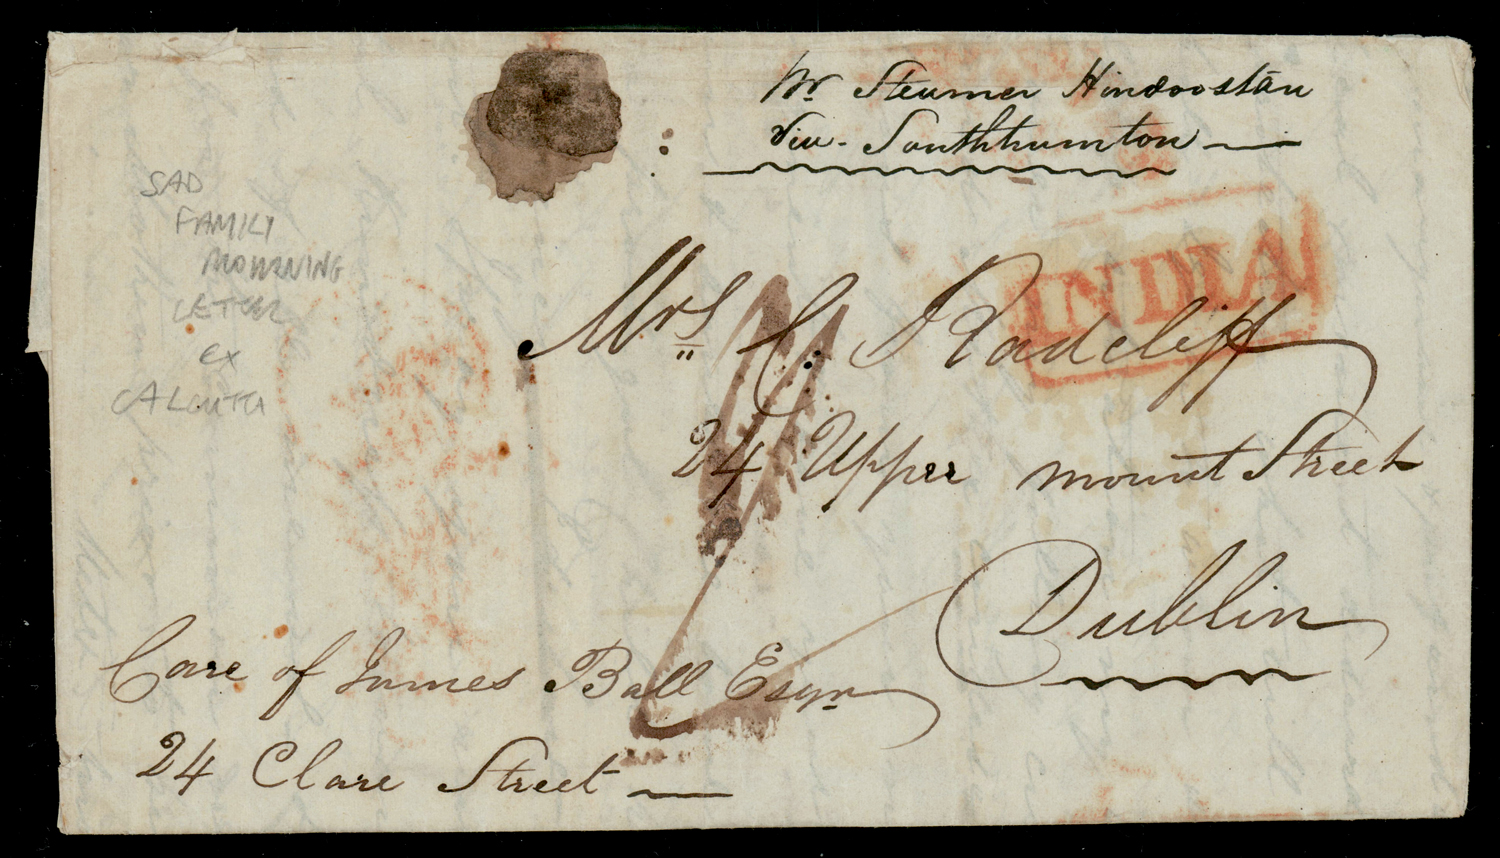 Pr Steamer Hindoostān
Via - Southhamton
SAD
FAMILY
MOURNING
LETTER
ex
CALCUTTA
INDIA
Mrs C. Radcliff
24 Upper mount Street
Dublin
Care of James Ball Esqr
24 Clare Street